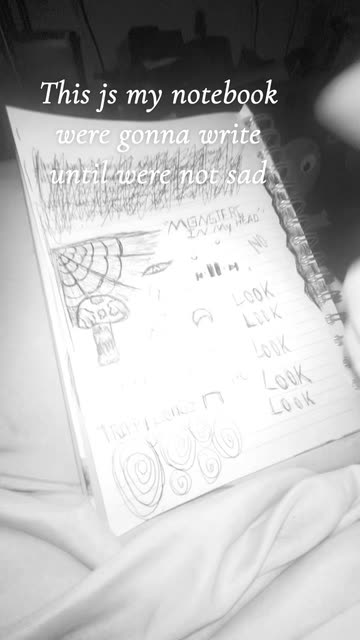 This js my notebook
were gonna write
until were not sad
MONSTERS
IN MY HEAD
NO
LOOK
LOOK
LOOK
LOOK
LOOK